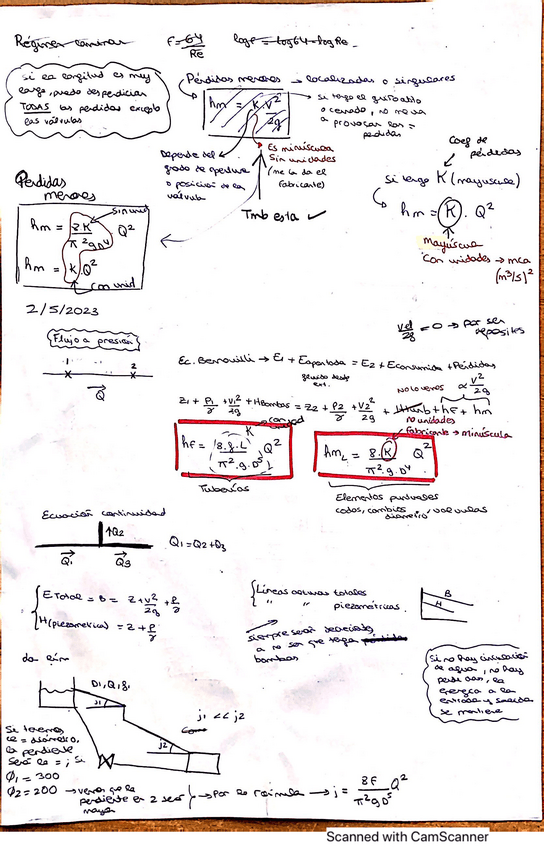 Régimen laminar
F = 64/RE
log F = log 64 - log Re
Si la longitud es muy
larga, puedo despreciar
TODAS las pérdidas excepto
las válvulas
Pérdidas menores → localizadas o singulares
hm = k · V²/2g
→ si tengo el grifo abierto
o cerrado, no me va
a provocar las =
pérdidas
Depende del
grado de apertura
o posición de la
válvula
Es minúscula
Sin unidades
(me la da el
fabricante)
Tmb esta ✓
Coef de
pérdidas
Si tengo K (mayúscula)
hm = K · Q²
mayúscula
Con unidades → mca
(m³/s)²
Pérdidas
menores
sin unid
hm = 8·K/π²gD⁴ Q²
hm = K·Q²
con unid
2/5/2023
Flujo a presión
1 2
Q
V²/2g = 0 → por ser
depósitos
Ec. Bernouilli → E1 + Eaportada = E2 + Econsumida + Pérdidas
No lo veres
α V²/2g
Z1 + P1/γ + V1²/2g + HBombas = Z2 + P2/γ + V2²/2g + Hturb + hF + hm
con unid
no unidades
Fabricante → minúscula
hF = 8·f·L/π²·g·D⁵ Q²
K
hmL = 8·K/π²·g·D⁴ Q²
Tuberías
Elementos puntuales
codos, cambios diámetro, valvulas
Ecuación continuidad
Q2
Q1 Q3
Q1 = Q2 + Q3
E Total = B = Z + V²/2g + P/γ
H (piezometrica) = Z + P/γ
Líneas alturas totales
" " piezométricas.
B
H
siempre serán
a no ser que tenga
bombas
Si no hay circulación
de agua, no hay
perdidas, la
energía a la
entrada y salida
se mantiene
D1, Q, f1
j1
j2
j1 << j2
Si tenemos
= diámetro,
la pendiente
será la = ; si
Ø1 = 300
Ø2 = 200 → vemos que la
pendiente en 2 será
mayor
→ Por la fórmula → j = 8F/π²gD⁵ Q²
Scanned with CamScanner